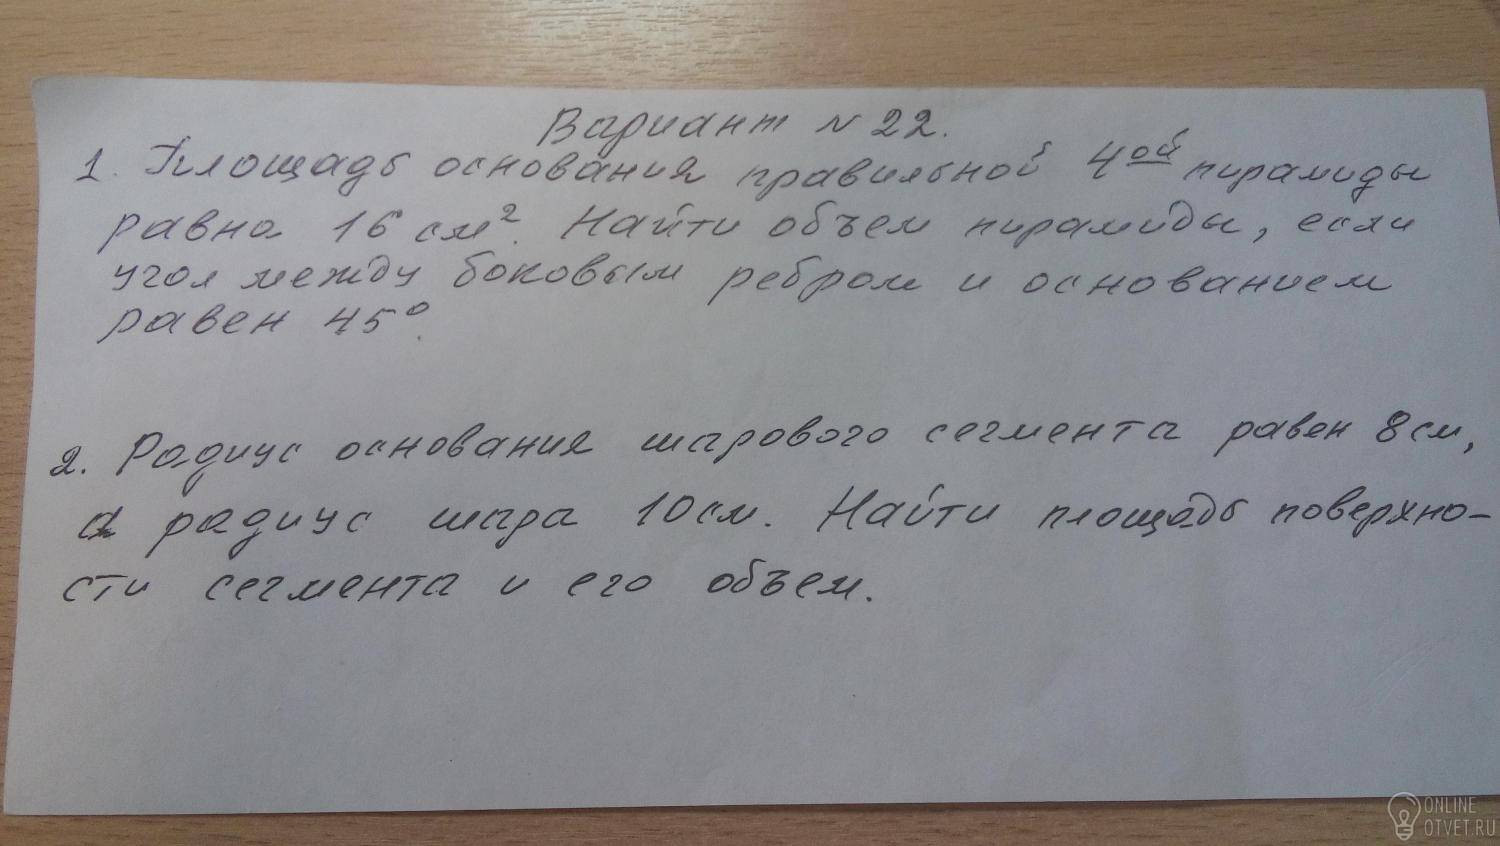 Вариант № 22.
1. Площадь основания правильной 4ой пирамиды
равна 16 см². Найти объем пирамиды, если
угол между боковым ребром и основанием
равен 45°.
2. Радиус основания шарового сегмента равен 8 см,
а радиус шара 10 см. Найти площадь поверхно-
сти сегмента и его объем.
ONLINE
OTVET.RU